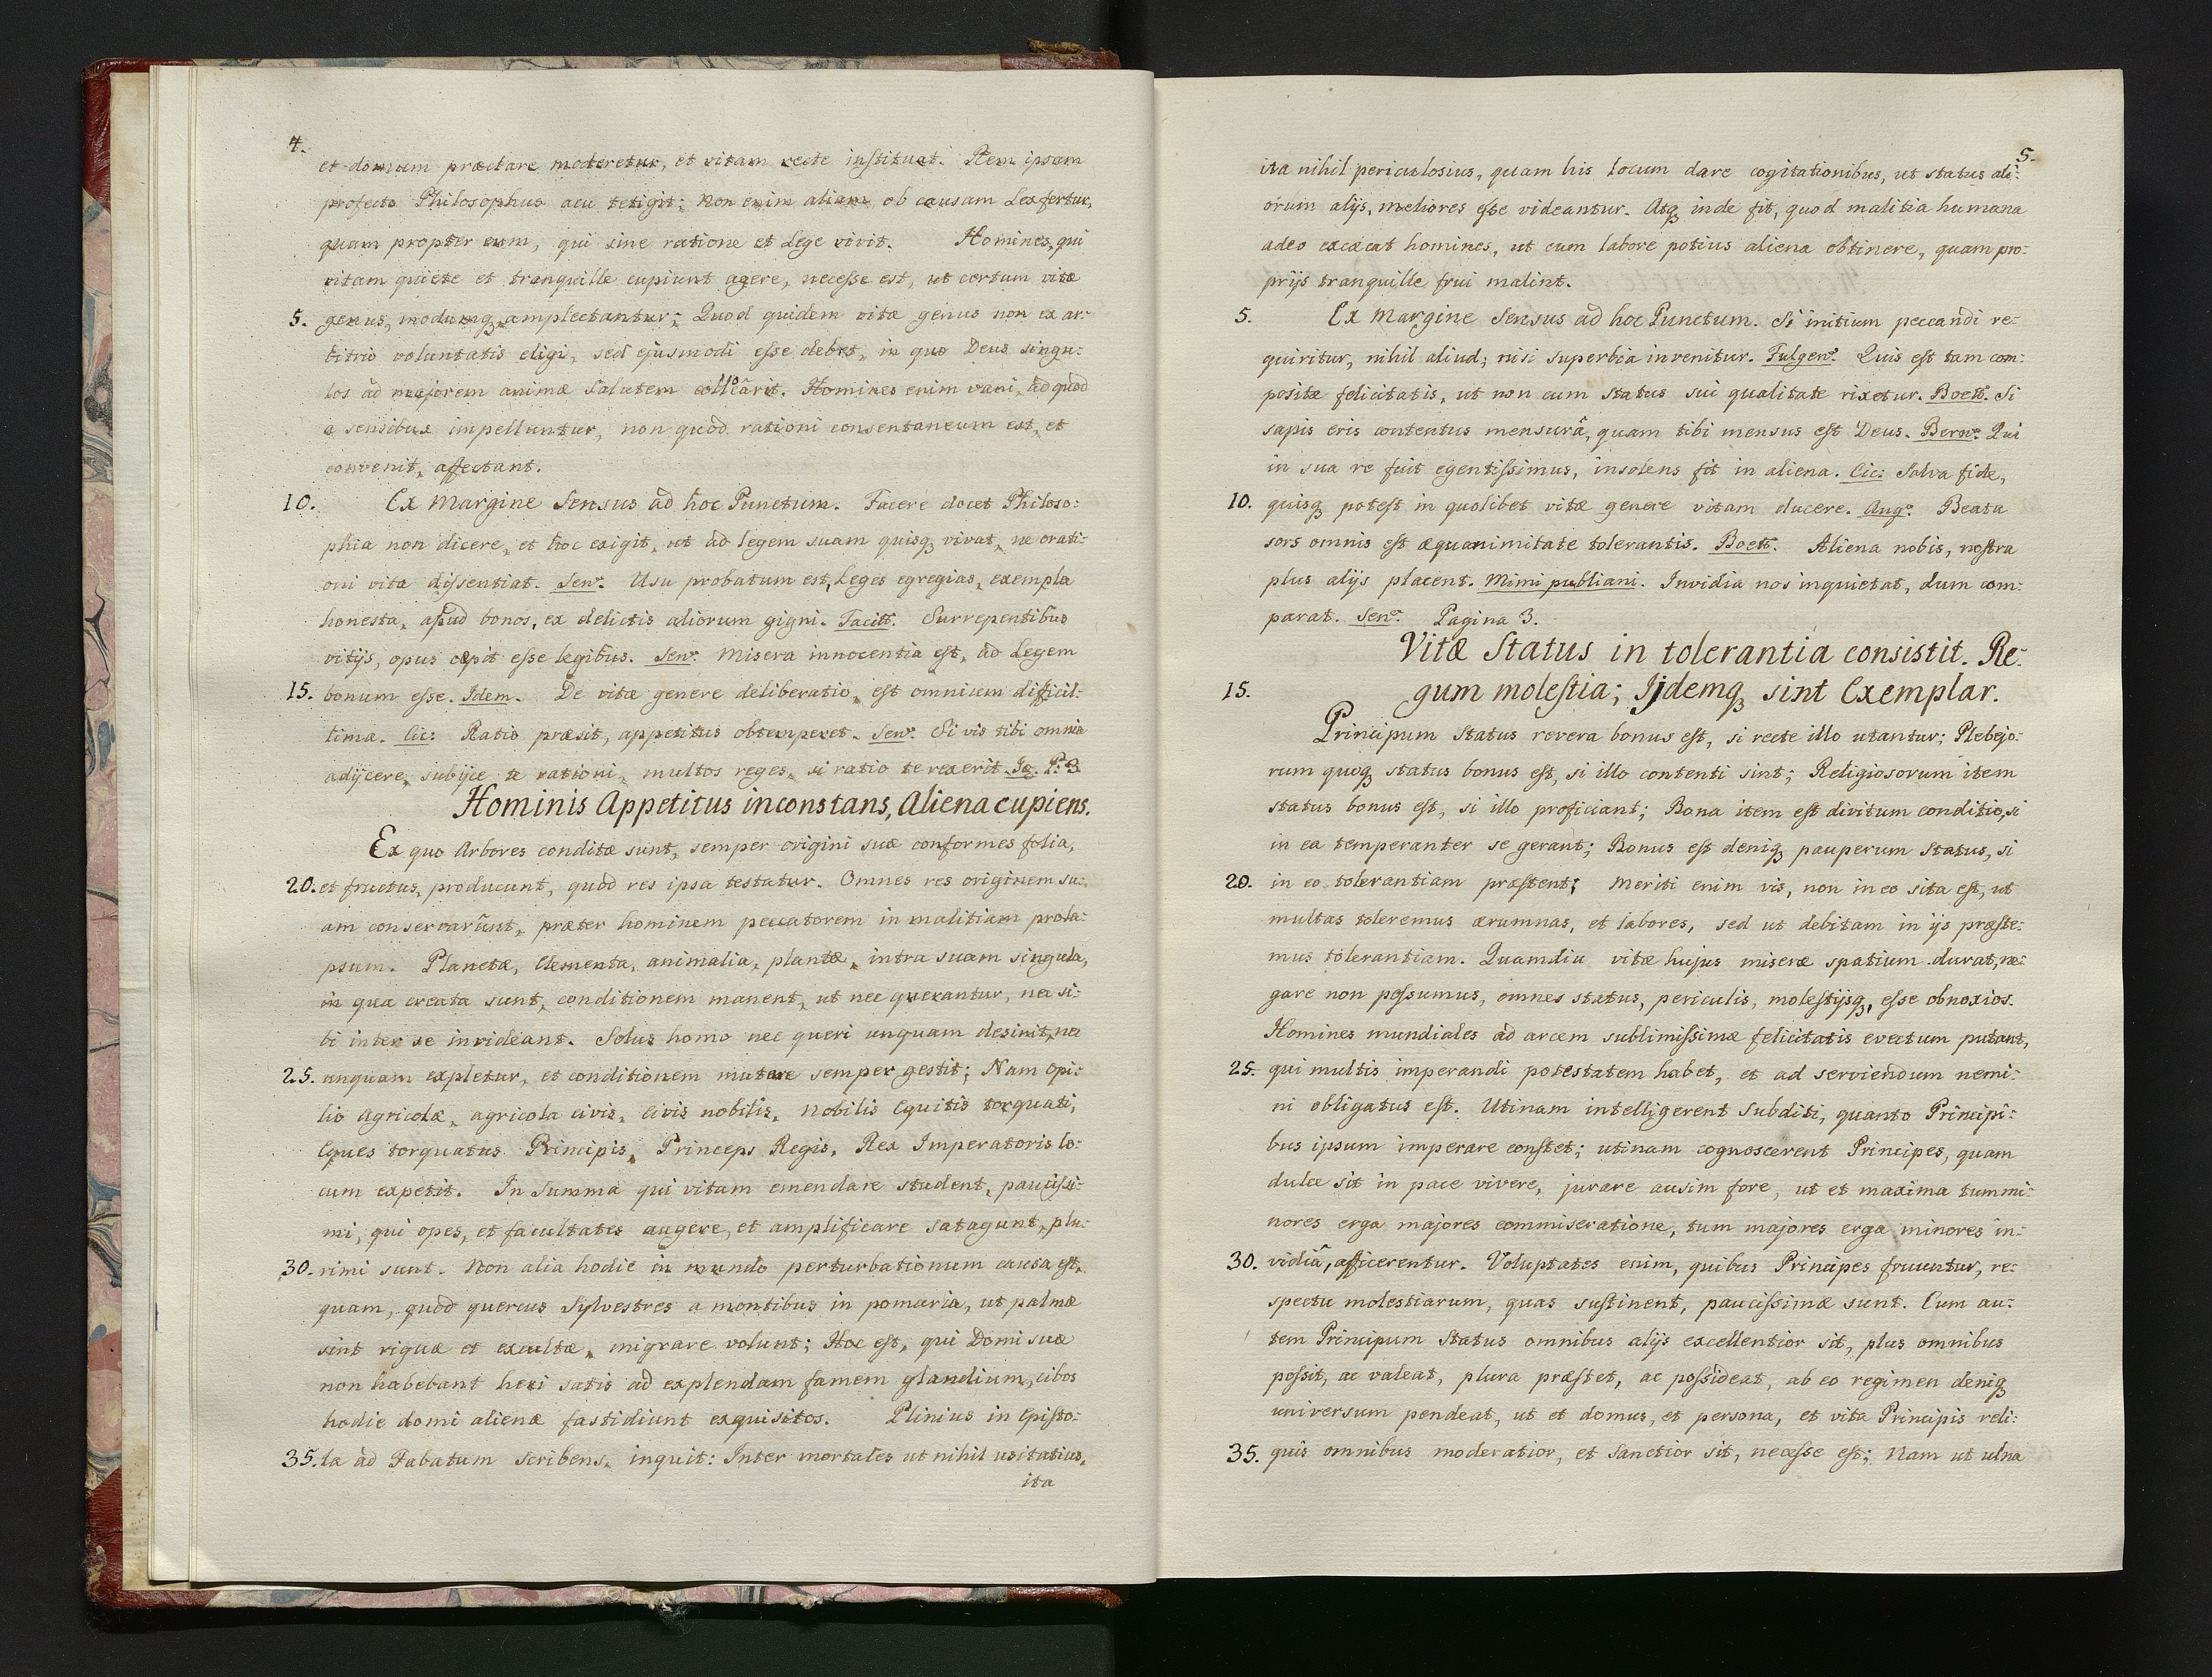 4.
et domum præclare moderetur, et vitam recte instituat. Rem ipsam
profecto Philosophus acu tetigit; Non enim aliam ob causam Lex fertur,
quam propter eum, qui sine ratione et Lege vivit. Homines, qui
vitam quiete et tranquille cupiunt agere, necesse est, ut certum vitæ
5. genus, modumq, amplectantur; Quod quidem vitæ genus non ex ar:
bitrio voluntatis eligi, sed ejusmodi esse debet, in quo Deus singu:
los ad majorem animæ Salutem collocârit. Homines enim vani, ad quod
a sensibus impelluntur, non quod rationi consentaneum est, et
convenit, affectant.
10. Ex Margine Sensus ad hoc Punctum. Facere docet Philoso:
phia non dicere, et hoc exigit, ut ad legem suam quisq, vivat, ne orati:
oni vita dissentiat. Sen. Usu probatum est, Leges egregias, exempla
honesta, apud bonos, ex delictis aliorum gigni. Tacit. Surrepentibus
vitijs, opus cæpit esse legibus. Sen. Misera innocentia est, ad Legem
15. bonum esse. Idem. De vitæ genere deliberatio, est omnium difficil:
lima. Cic: Ratio præsit, appetitus obtemperet. Sen. Si vis tibi omnia
adijcere, subijce te rationi, multos reges, si ratio te rexerit. Ja. P. 3.
Hominis Appetitus inconstans, Aliena cupiens.
Ex quo Arbores conditæ sunt, semper origini suæ conformes folia,
20. et fructus, producunt, quod res ipsa testatur. Omnes res originem su:
am conservarûnt, præter hominem peccatorem in malitiam prola:
psum. Planetæ, Elementa, animalia, plantæ, intra suam singula,
in qua creata sunt, conditionem manent, ut nec querantur, nec si:
bi inter se invideant. Solus homo nec queri unquam desinit, nec
25. unquam expletur, et conditionem mutare semper gestit; Nam Opi:
lio Agricolæ, agricola civis, Civis nobilis, Nobilis Equitis torquati,
Eques torquatus Principis, Princeps Regis, Rex Imperatoris lo:
cum expetit. In Summa qui vitam emendare student, paucissi:
mi, qui opes, et facultates augere, et amplificare satagunt, plu:
30. rimi sunt. Non alia hodie in mundo perturbationum causa est,
quam, quod quercus Sylvestres a montibus in pomaria, ut palmæ
sint riguæ et excultæ, migrare volunt; Hoc est, qui Domi suæ
non habebant heri satis ad explendam famem glandium, cibos
hodie domi alienæ fastidiunt exquisitos. Plinius in Episto:
35. la ad Fabatum scribens, inquit: Inter mortales ut nihil usitatius,
ita
5.
ita nihil periculosius, quam his locum dare cogitationibus, ut status ali:
orum alijs, meliores esse videantur. Atq, inde fit, quod malitia humana
adeo excæcat homines, ut cum labore potius aliena obtinere, quam pro:
prijs tranquille frui malint.
5. Ex Margine Sensus ad hoc Punctum. Si initium peccandi re:
quiritur, nihil aliud; nisi superbia invenitur. Fulgen. Quis est tam com:
positæ felicitatis, ut non cum status sui qualitate rixetur. Boet. Si
sapis eris contentus mensurâ, quam tibi mensus est Deus. Bern. Qui
in sua re fuit egentissimus, insolens fit in aliena. Cic: Salva fide,
10. quisq, potest in quolibet vitæ genere vitam ducere. Aug. Beata
sors omnis est æquanimitate tolerantis. Boet. Aliena nobis, nostra
plus alijs placent. Mimi publiani. Invidia nos inquietat, dum com:
parat. Sen. Pagina 3.
Vitæ Status in tolerantia consistit. Re:
15. gum molestia; Ijdemq, sint Exemplar.
Principum Status revera bonus est, si recte illo utantur; Plebejo:
rum quoq, status bonus est, si illo contenti sint; Religiosorum item
status bonus est, si illo proficiant; Bona item est divitum conditio, si
in ea temperanter se gerant; Bonus est deniq, pauperum Status, si
20. in eo tolerantiam præstent; Meriti enim vis, non in eo sita est, ut
multas toleremus ærumnas, et labores, sed ut debitam in ijs præste:
mus tolerantiam. Quamdiu vitæ hujus miseræ spatium durat, ne:
gare non possumus, omnes status, periculis, molestijsq, esse obnoxios.
Homines mundiales ad arcem sublimissimæ felicitatis evectum putant,
25. qui multis imperandi potestatem habet, et ad serviendum nemi:
ni obligatus est. Utinam intelligerent Subditi, quanto Principi:
bus ipsum imperare constet; utinam cognoscerent Principes, quam
dulce sit in pace vivere, jurare ausim fore, ut et maxima tum mi:
nores erga majores commiseratione, tum majores erga minores in:
30. vidiâ, afficerentur. Voluptates enim, quibus Principes fruuntur, re:
spectu molestiarum, quas sustinent, paucissimæ sunt. Cum au:
tem Principum Status omnibus alijs excellentior sit, plus omnibus
possit, ac valeat, plura præstet, ac possideat, ab eo regimen deniq,
universum pendeat, ut et domus, et persona, et vita Principis reli:
35. quis omnibus moderatior, et Sanctior sit, necesse est; Nam ut ulna